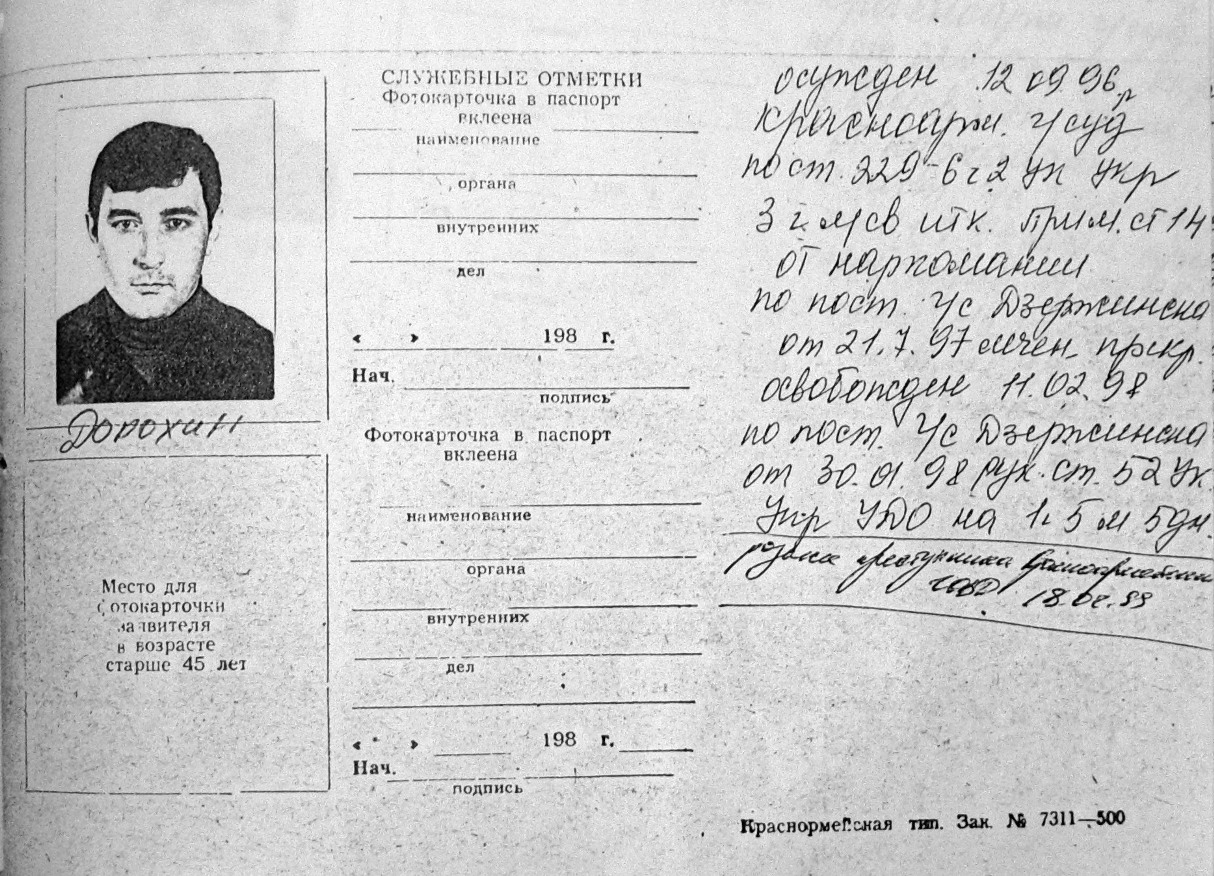 Дорохин
Место для
фотокарточки
заявителя
в возрасте
старше 45 лет
СЛУЖЕБНЫЕ ОТМЕТКИ
Фотокарточка в паспорт
вклеена
наименование
органа
внутренних
дел
« » 198 г.
Нач.
подпись
Фотокарточка в паспорт
вклеена
наименование
органа
внутренних
дел
« » 198 г.
Нач.
подпись
осужден 12 09 96 г
Красноарм. г/суд
по ст. 229-6 ч 2 УК Укр
3 г. л/св итк. Прим. ст 14
от наркомании
по пост. г/с Дзержинска
от 21.7.97 лечен. прекр.
освобожден 11.02.98
по пост. г/с Дзержинска
от 30.01.98 рук. ст. 52 УК
Укр УДО на 1 г 5 м 5 дн.
преступника
18.02.99
Красноармейская тип. Зак. № 7311—500